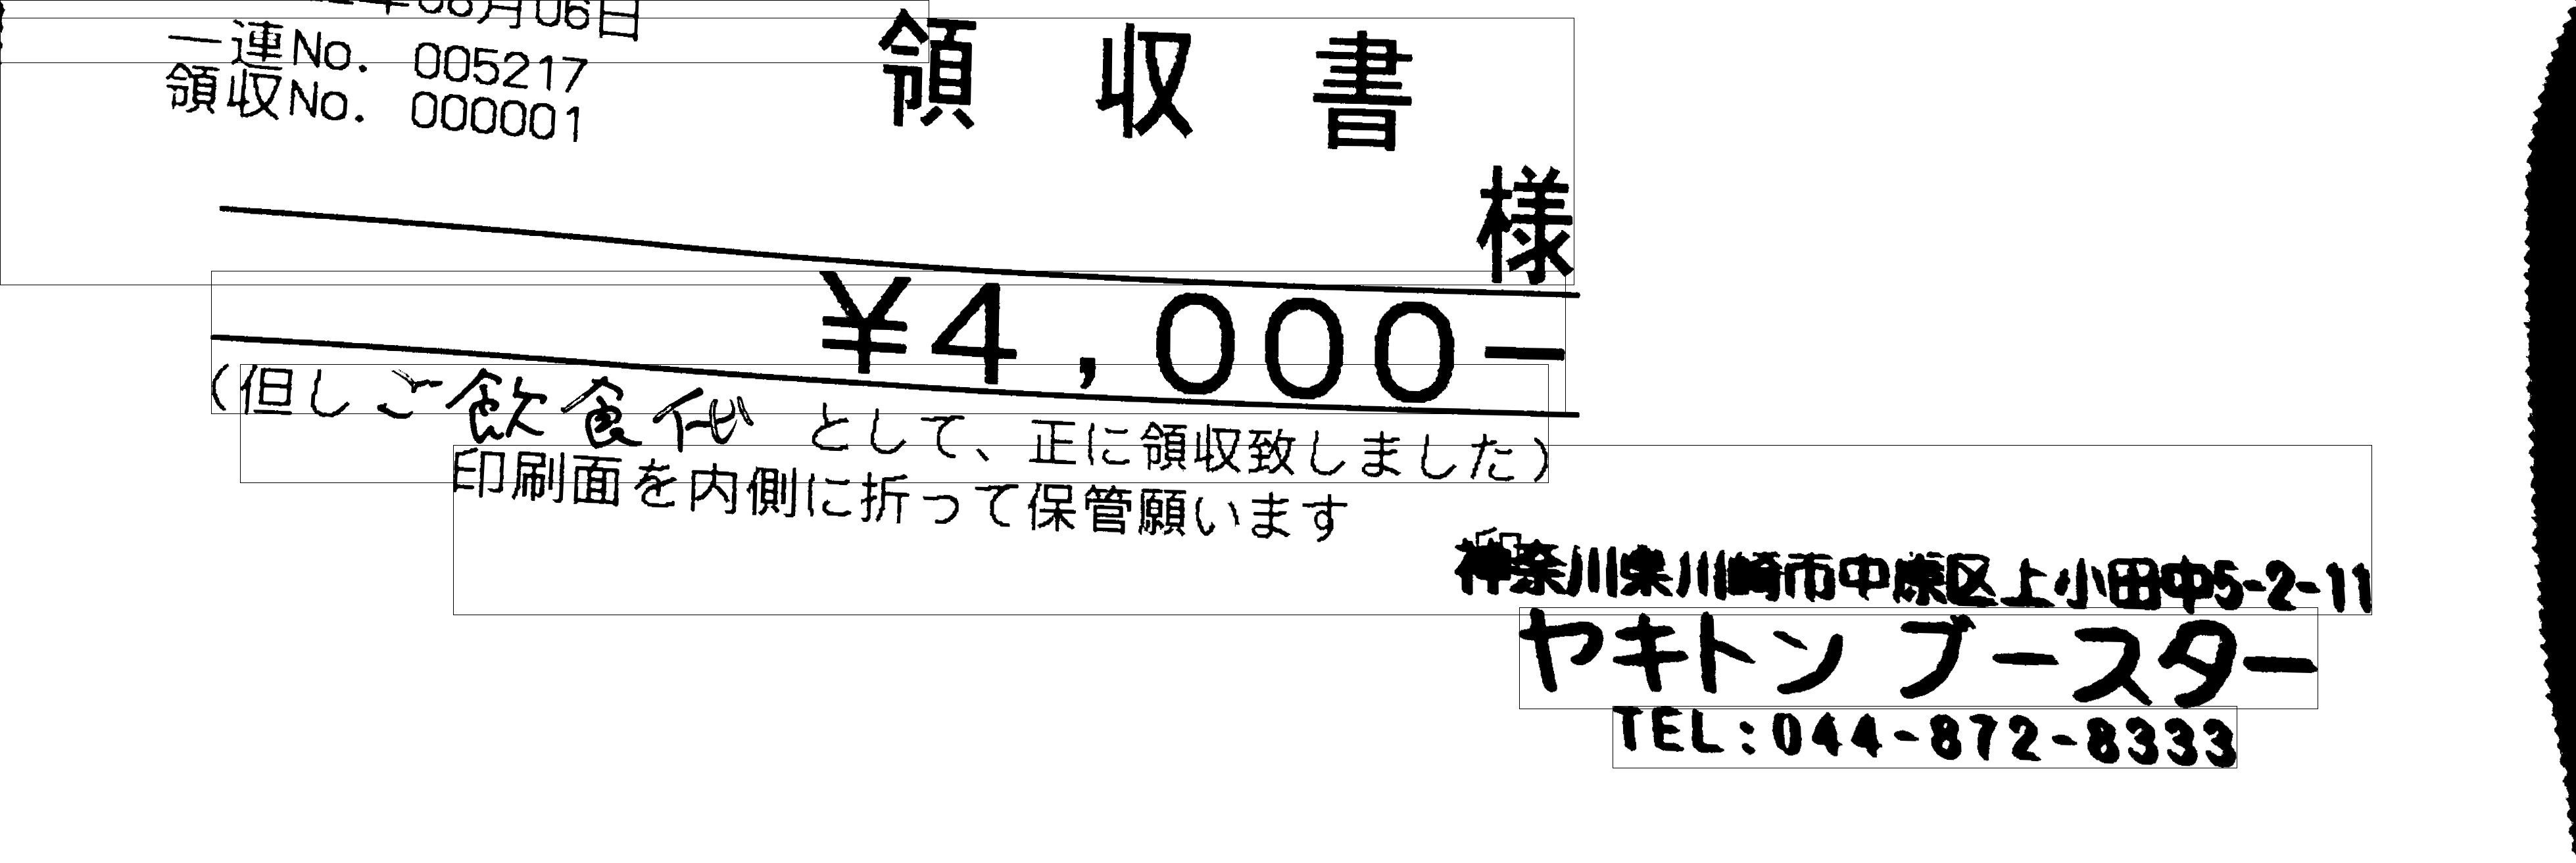 年08月06日
一連No. 005217
領収No. 000001
領収書
様
¥4,000-
(但しご飲食代 として、正に領収致しました)
印刷面を内側に折って保管願います
印
神奈川県川崎市中原区上小田中5-2-11
ヤキトン ブースター
TEL:044-872-8333